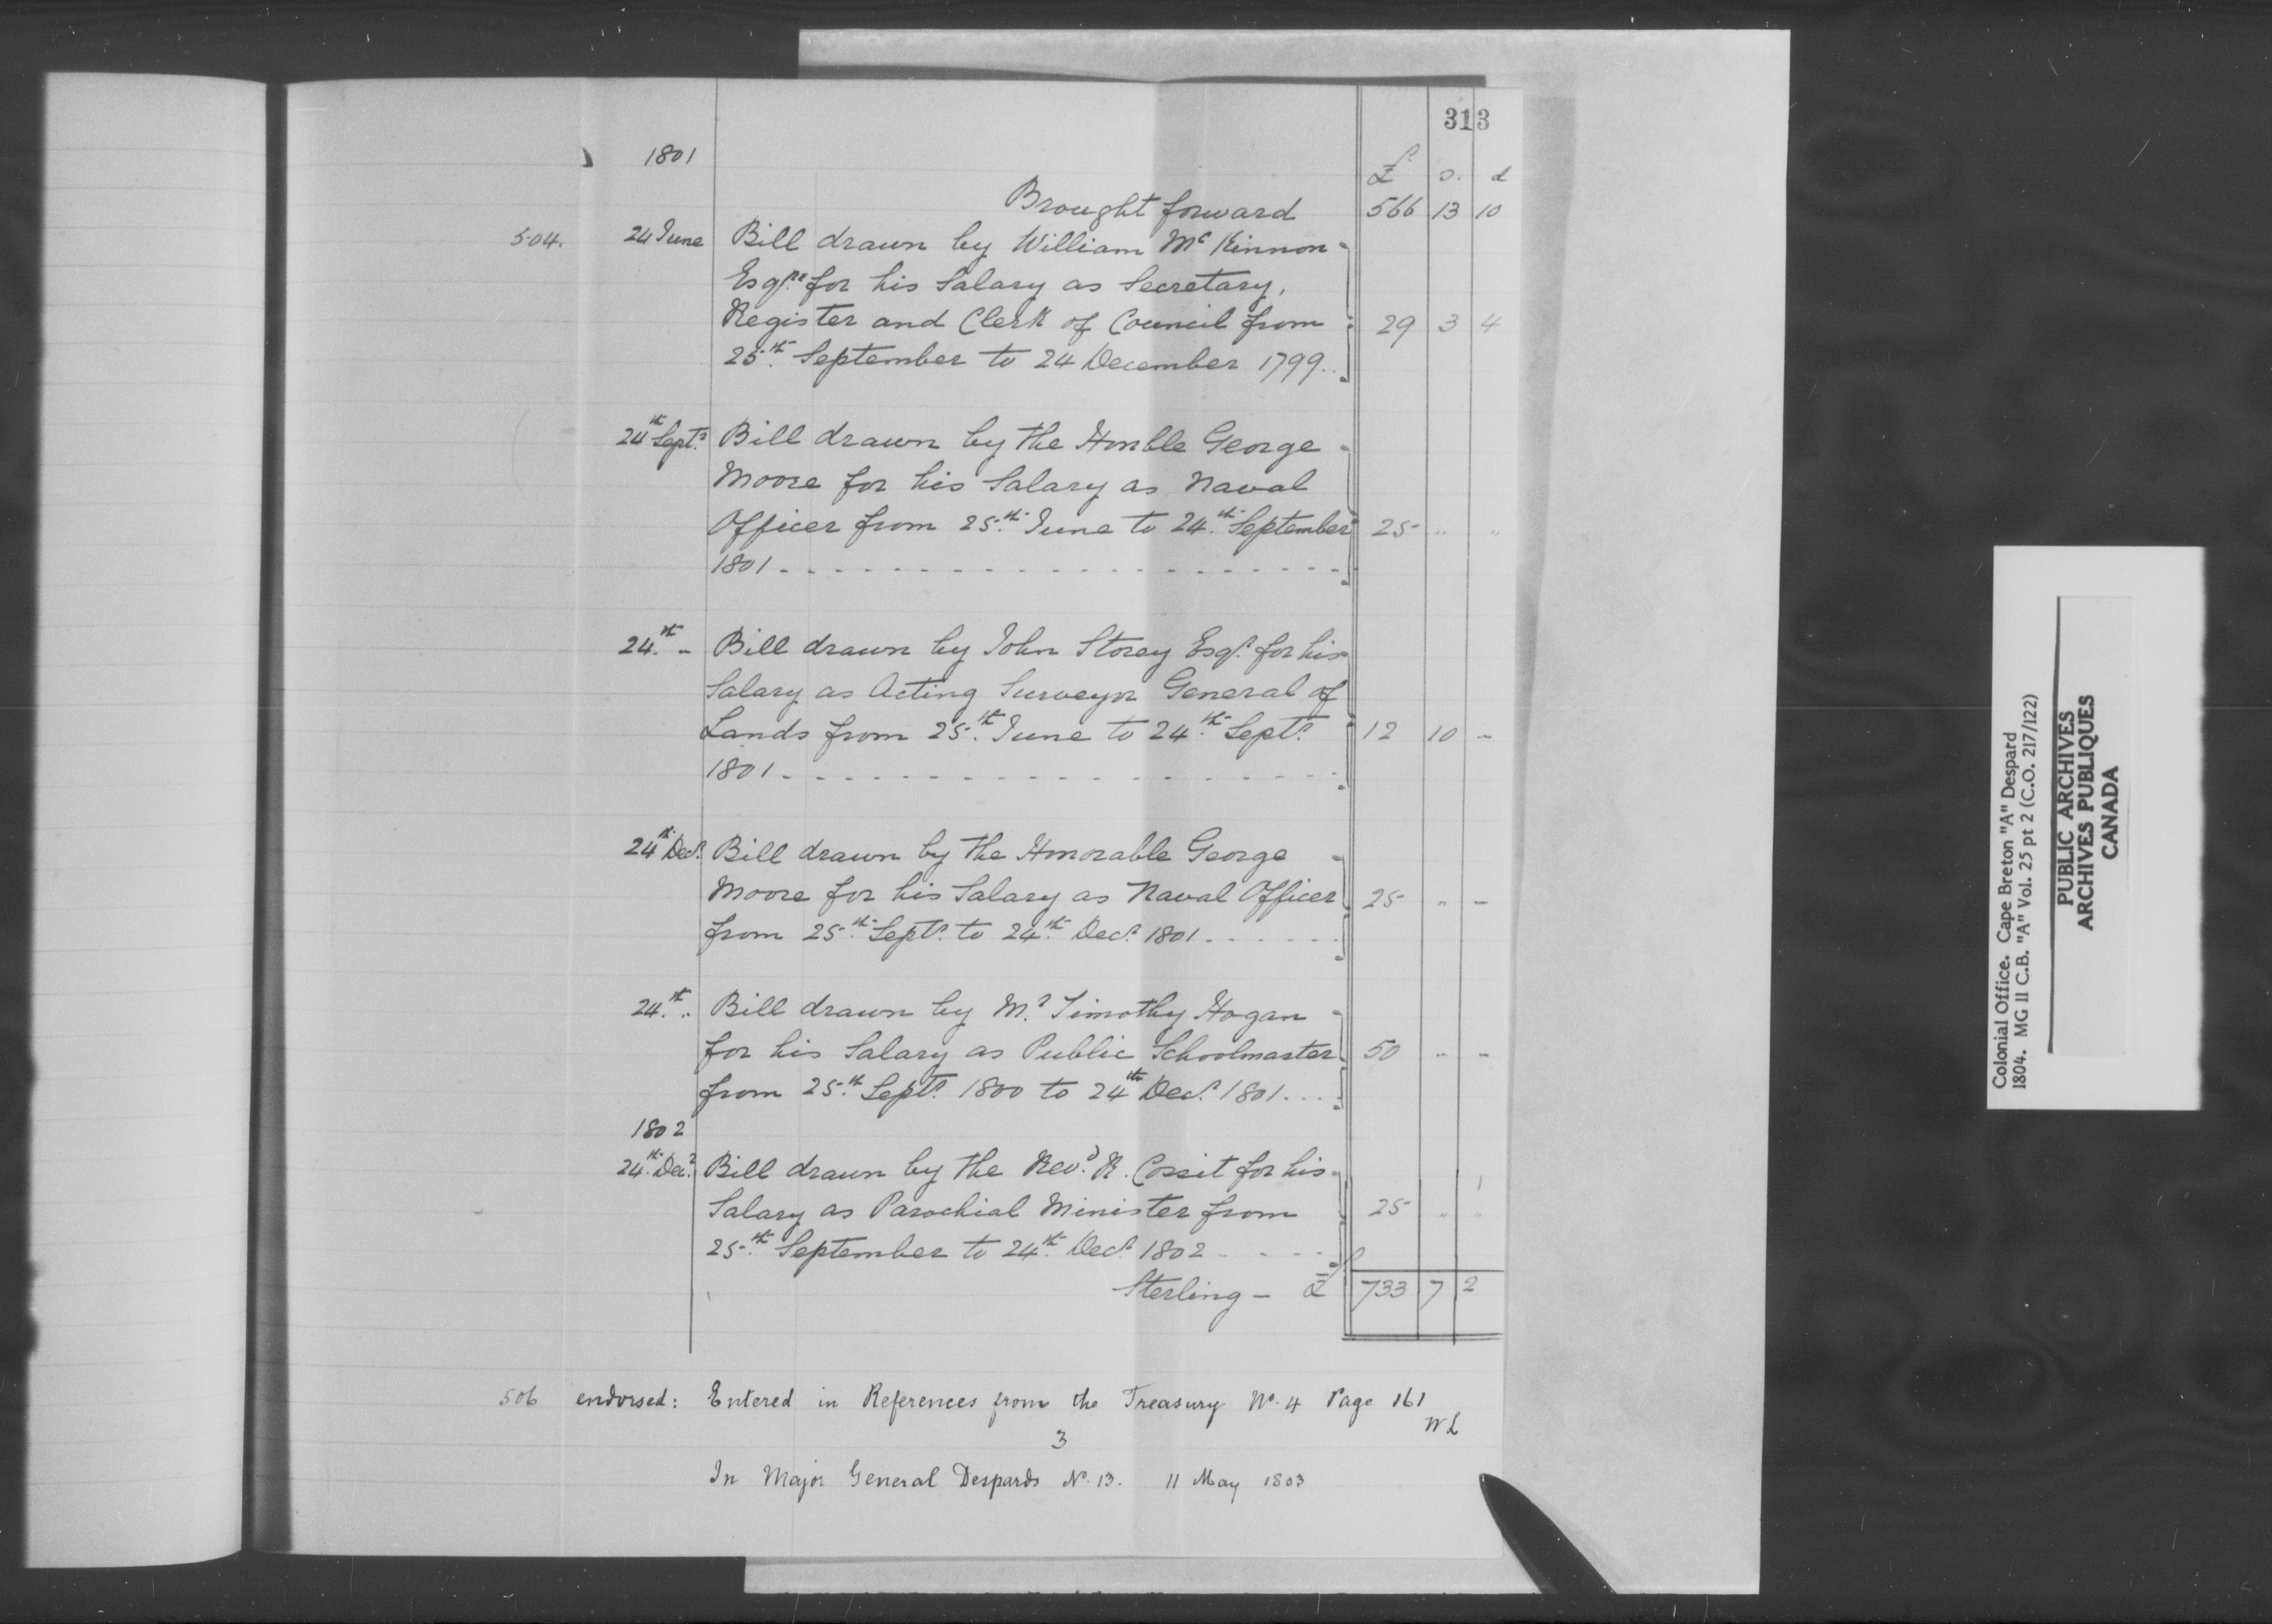 313
1801
£ s. d
Brought forward 566 13 10
504. 24 June Bill drawn by William Mc Kinnon
Esqre for his Salary as Secretary,
Register and Clerk of Council from 29 3 4
25th September to 24 December 1799..
24th Septr Bill drawn by the Honble George
Moore for his Salary as Naval
Officer from 25th June to 24th September 25 " "
1801 - - - - - - - - - - - - - - - - - - -
24th - Bill drawn by John Storey Esqr for his
Salary as Acting Surveyor General of
Lands from 25th June to 24th Septr 12 10 -
1801 - - - - - - - - - - - - - - - - - -
24th Decr Bill drawn by the Honorable George
Moore for his Salary as Naval Officer 25 " -
from 25th Septr to 24th Decr 1801 . - - - - -
24th .. Bill drawn by Mr Timothy Hogan
for his Salary as Public Schoolmaster 50 " -
from 25th Septr 1800 to 24th Decr 1801 . . . .
1802
24th Decr Bill drawn by the Revd R. Cossit for his
Salary as Parochial Minister from 25 " "
25th September to 24th Decr 1802 - - - -
Sterling - £ 733 7 2
506 endorsed: Entered in References from the Treasury No. 4 Page 161
WL
3
In Major General Despards No. 13. 11 May 1803
Colonial Office. Cape Breton "A" Despard
1804. MG 11 C.B. "A" Vol. 25 pt 2 (C.O. 217/122)
PUBLIC ARCHIVES
ARCHIVES PUBLIQUES
CANADA